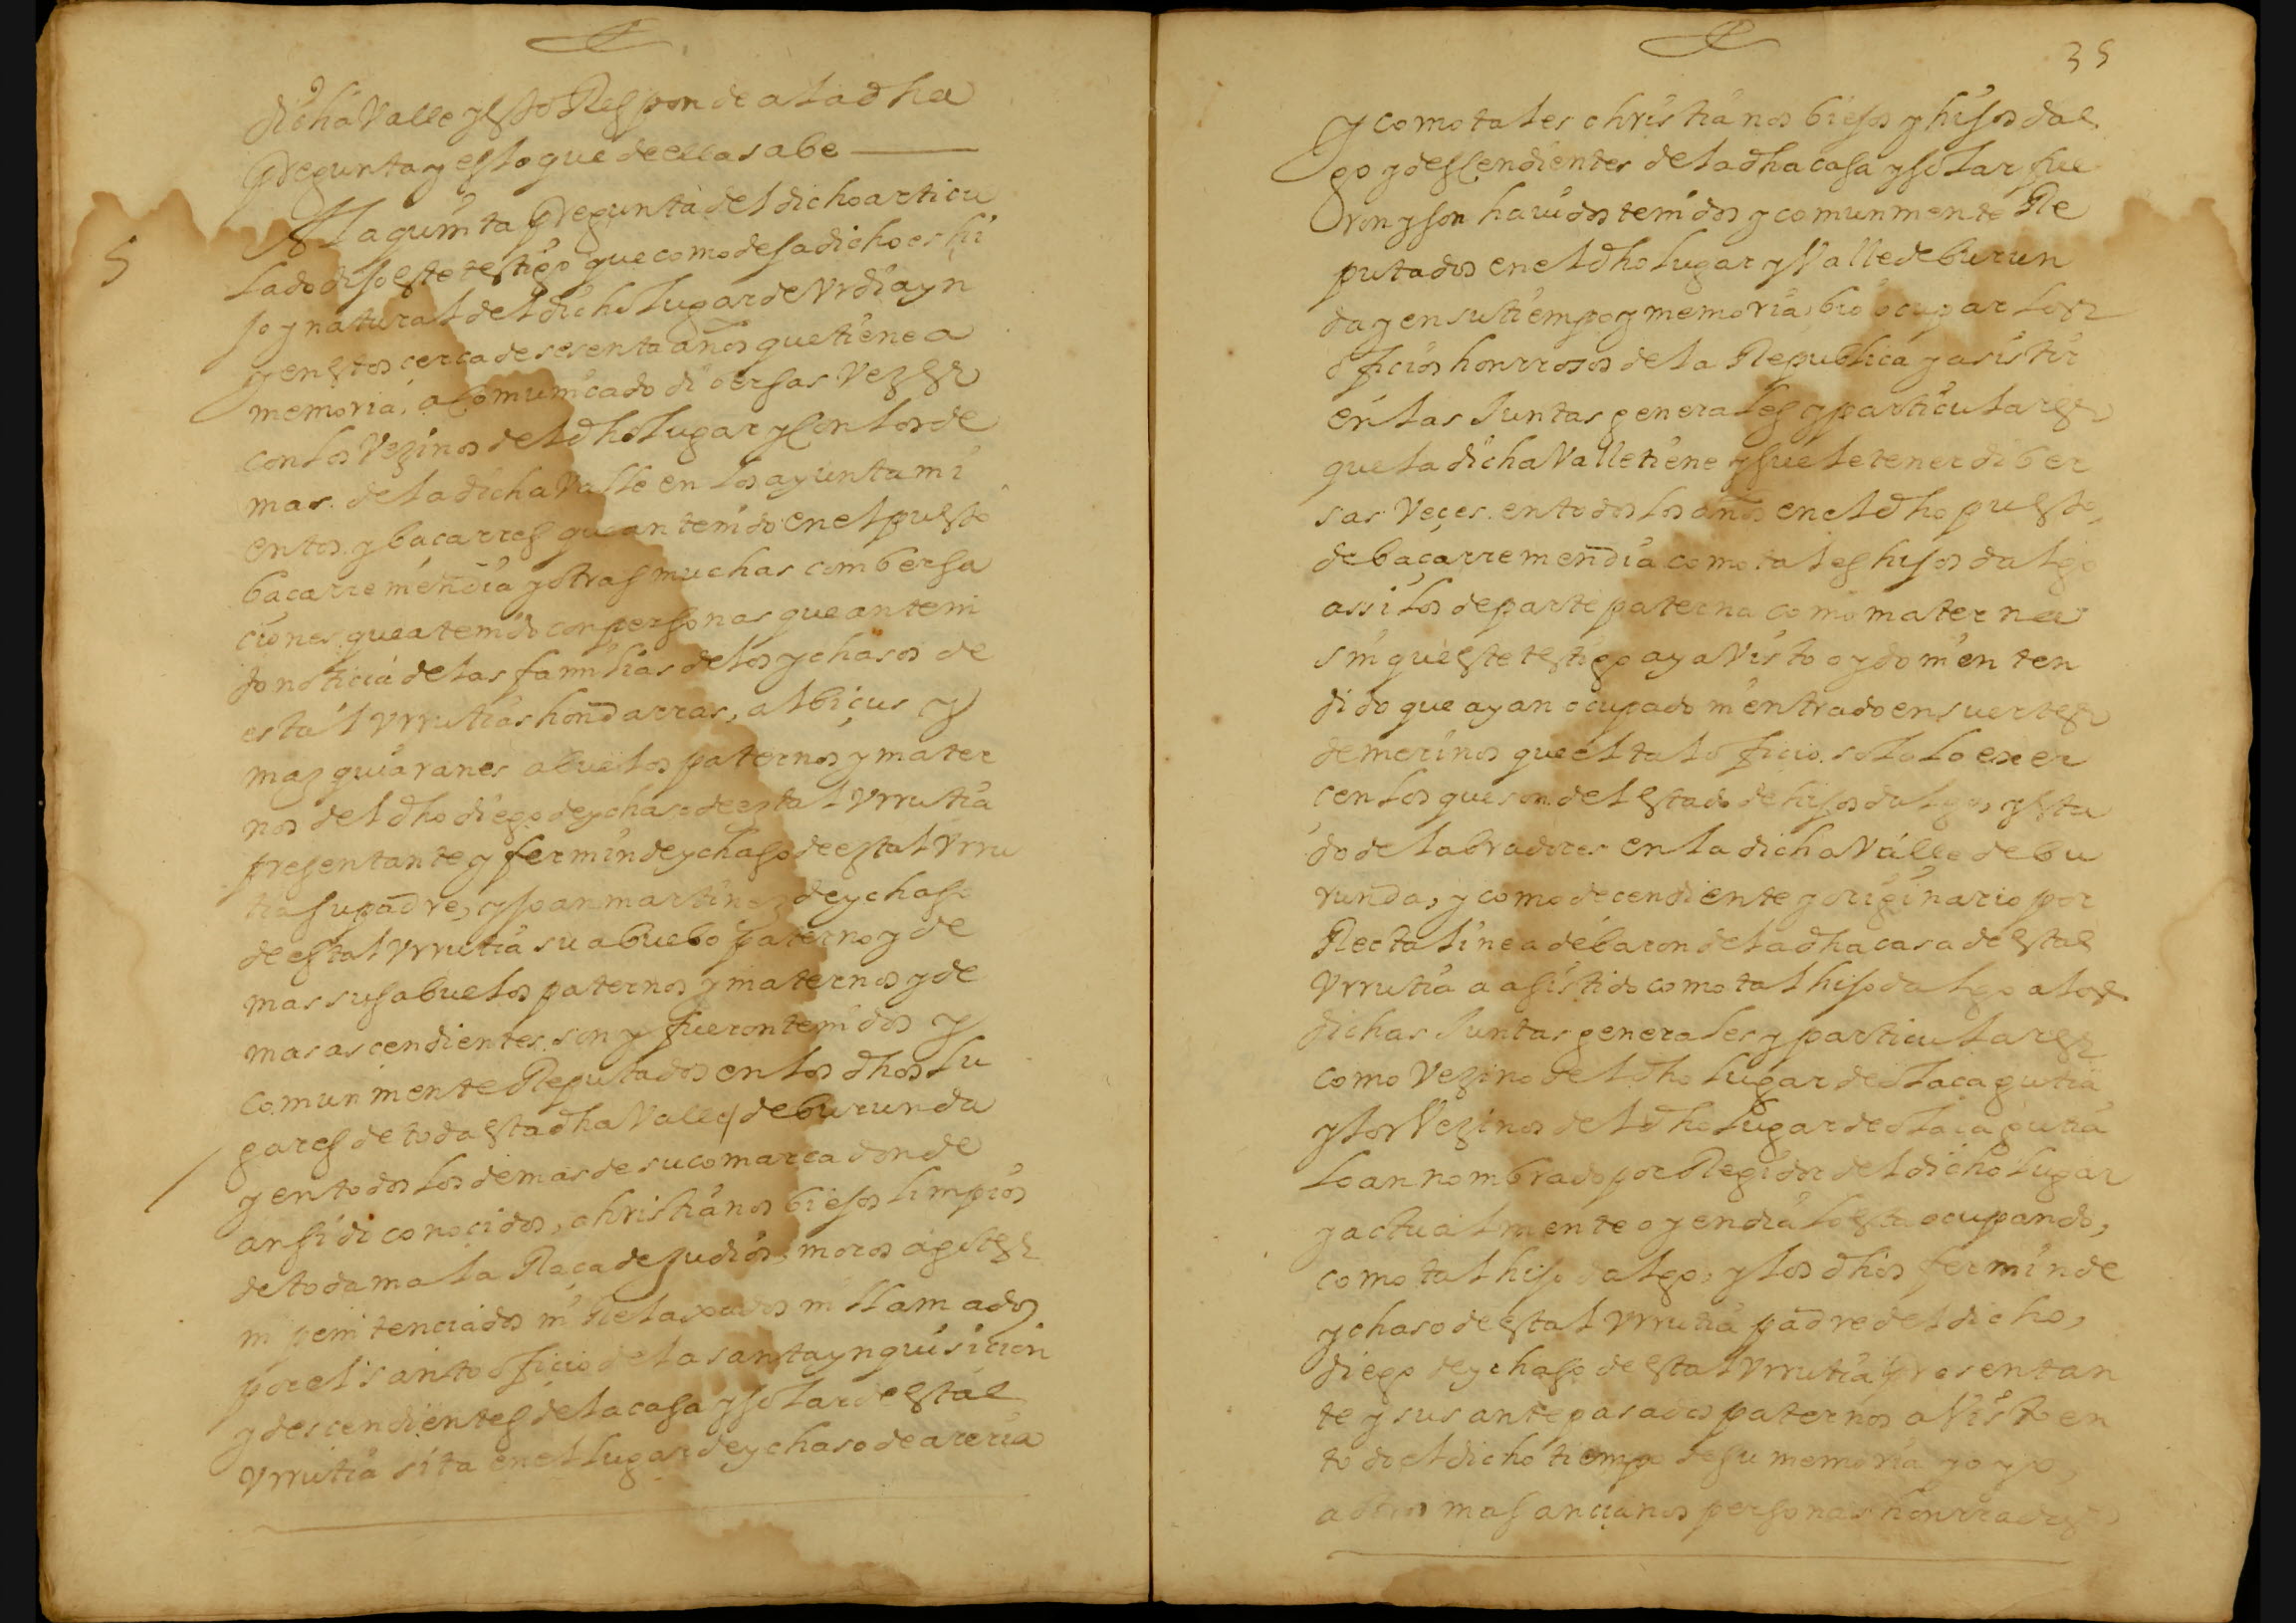 dicha Valle y esto Responde a la dha
Pregunta y es lo que de ella sabe
5
A la quinta Pregunta del dicho articu
lado dijo este testigo que como deja dicho es hi
jo y natural del dicho lugar de Vrdiayn
y en estos cerca de sesenta años que tiene a
memoria, a comunicado dibersas Vezes
con los Vezinos del dho lugar y con los de
mas de la dicha Valle en los ayuntami
entos y baçarres que an tenido en el puesto
baçarremendia y otras muchas combersa
ciones que a tenido con personas que an teni
do noticia de las familias de los ychasos de
estal Vrrutias hondarras, albiçus y
mazquiaranes abuelos paternos y mater
nos del dho diego de ychaso de estal Vrrutia
presentante y fermin de ychaso de estal Vrru
tia su padre, y joan martinez de ychaso
de estal Vrrutia su abuelo paterno y de
mas sus abuelos paternos y maternos y de
mas ascendientes son y fueron tenidos y
comunmente Reputados en los dhos lu
gares de toda esta dha Valle de burunda
y en todos los demas de su comarca donde
an sido conocidos, christianos biejos limpios
de toda mala Raça de judios, moros agotes
ni penitenciados ni Relaxados ni llamados
por el santo oficio de la santa ynquisicion
y descendientes de la casa y solar de estal
Vrrutia sita en el lugar de ychaso de areria
35
y como tales christianos biejos y hijos dal
go y descendientes de la dha casa y solar fue
ron y son hauidos tenidos y comunmente Re
putados en el dho lugar y Valle de burun
da y en su tiempo y memoria, bio ocupar los
oficios honrrosos de la Republica y asistir
en las Juntas generales y particulares
que la dicha Valle tiene y suele tener diber
sas Veçes en todos los años en el dho puesto
de baçarremendia como tales hijos dalgo
assi los de parte paterna como materna
sin que este testigo aya Visto oydo ni enten
dido que ayan ocupado ni entrado en suertes
de merinos que el tal oficio solo lo exer
cen los que son del estado de hijos dalgo, y esta
do de labradores en la dicha Valle de bu
runda, y como decendiente y originario por
Recta linea de baron de la dha casa de estal
Vrrutia a asistido como tal hijo dalgo a las
dichas Juntas generales y particulares
como Vezino del dho lugar de olaçagutia
y los Vezinos del dho lugar de olaçagutia
lo an nombrado por Regidor del dicho lugar
y actualmente oy en dia lo esta ocupando,
como tal hijo dalgo, y los dhos fermin de
ychaso de estal Vrrutia padre del dicho,
diego de ychaso de estal Vrrutia Presentan
te y sus antepasados paternos a Visto en
todo el dicho tiempo de su memoria y oyo,
a otros mas ancianos personas honrradas